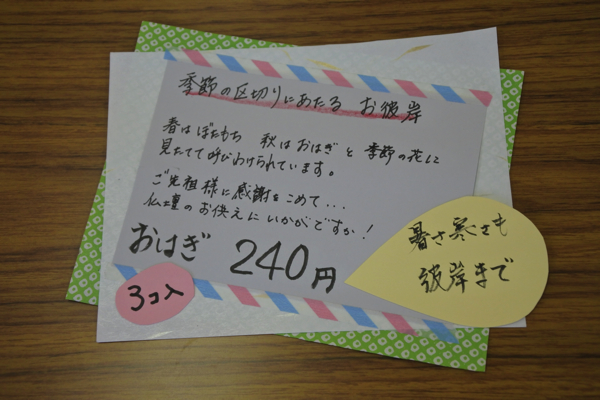 季節の区切りにあたる お彼岸
春はぼたもち 秋はおはぎと 季節の花に
見たてて呼びわけられています。
ご先祖様に感謝をこめて...
仏壇のお供えにいかがですか!
おはぎ 240円
3コ入
暑さ寒さも
彼岸まで